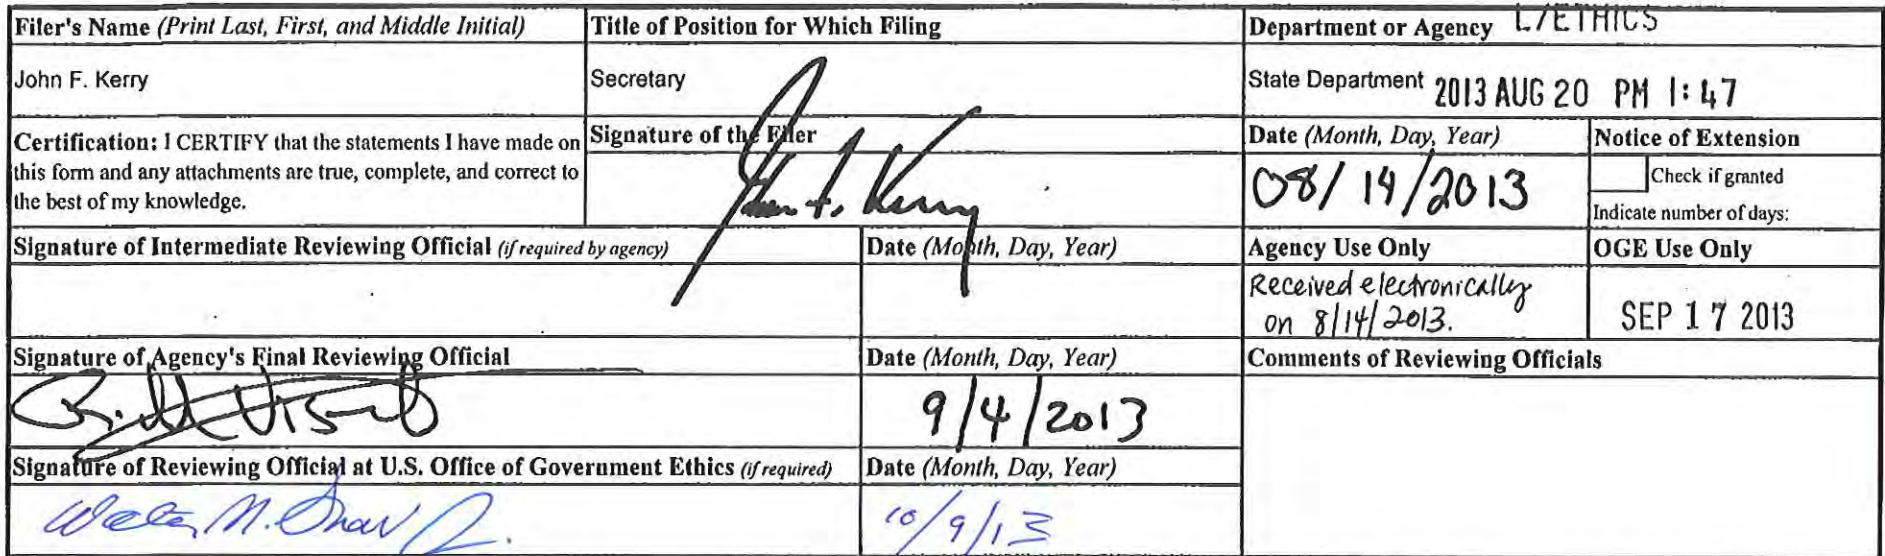 Filer's Name (Print Last, First, and Middle Initial)
Title of Position for Which Filing
Department or Agency L/ETHICS
John F. Kerry
Secretary
State Department 2013 AUG 20 PM 1:47
Certification: I CERTIFY that the statements I have made on
this form and any attachments are true, complete, and correct to
the best of my knowledge.
Signature of the Filer
John F. Kerry
Date (Month, Day, Year)
08/14/2013
Notice of Extension
Check if granted
Indicate number of days:
Signature of Intermediate Reviewing Official (if required by agency)
Date (Month, Day, Year)
Agency Use Only
Received electronically
on 8/14/2013.
OGE Use Only
SEP 17 2013
Signature of Agency's Final Reviewing Official
Date (Month, Day, Year)
9/4/2013
Comments of Reviewing Officials
Signature of Reviewing Official at U.S. Office of Government Ethics (if required)
Date (Month, Day, Year)
Walter M. Shaub Jr.
10/9/13